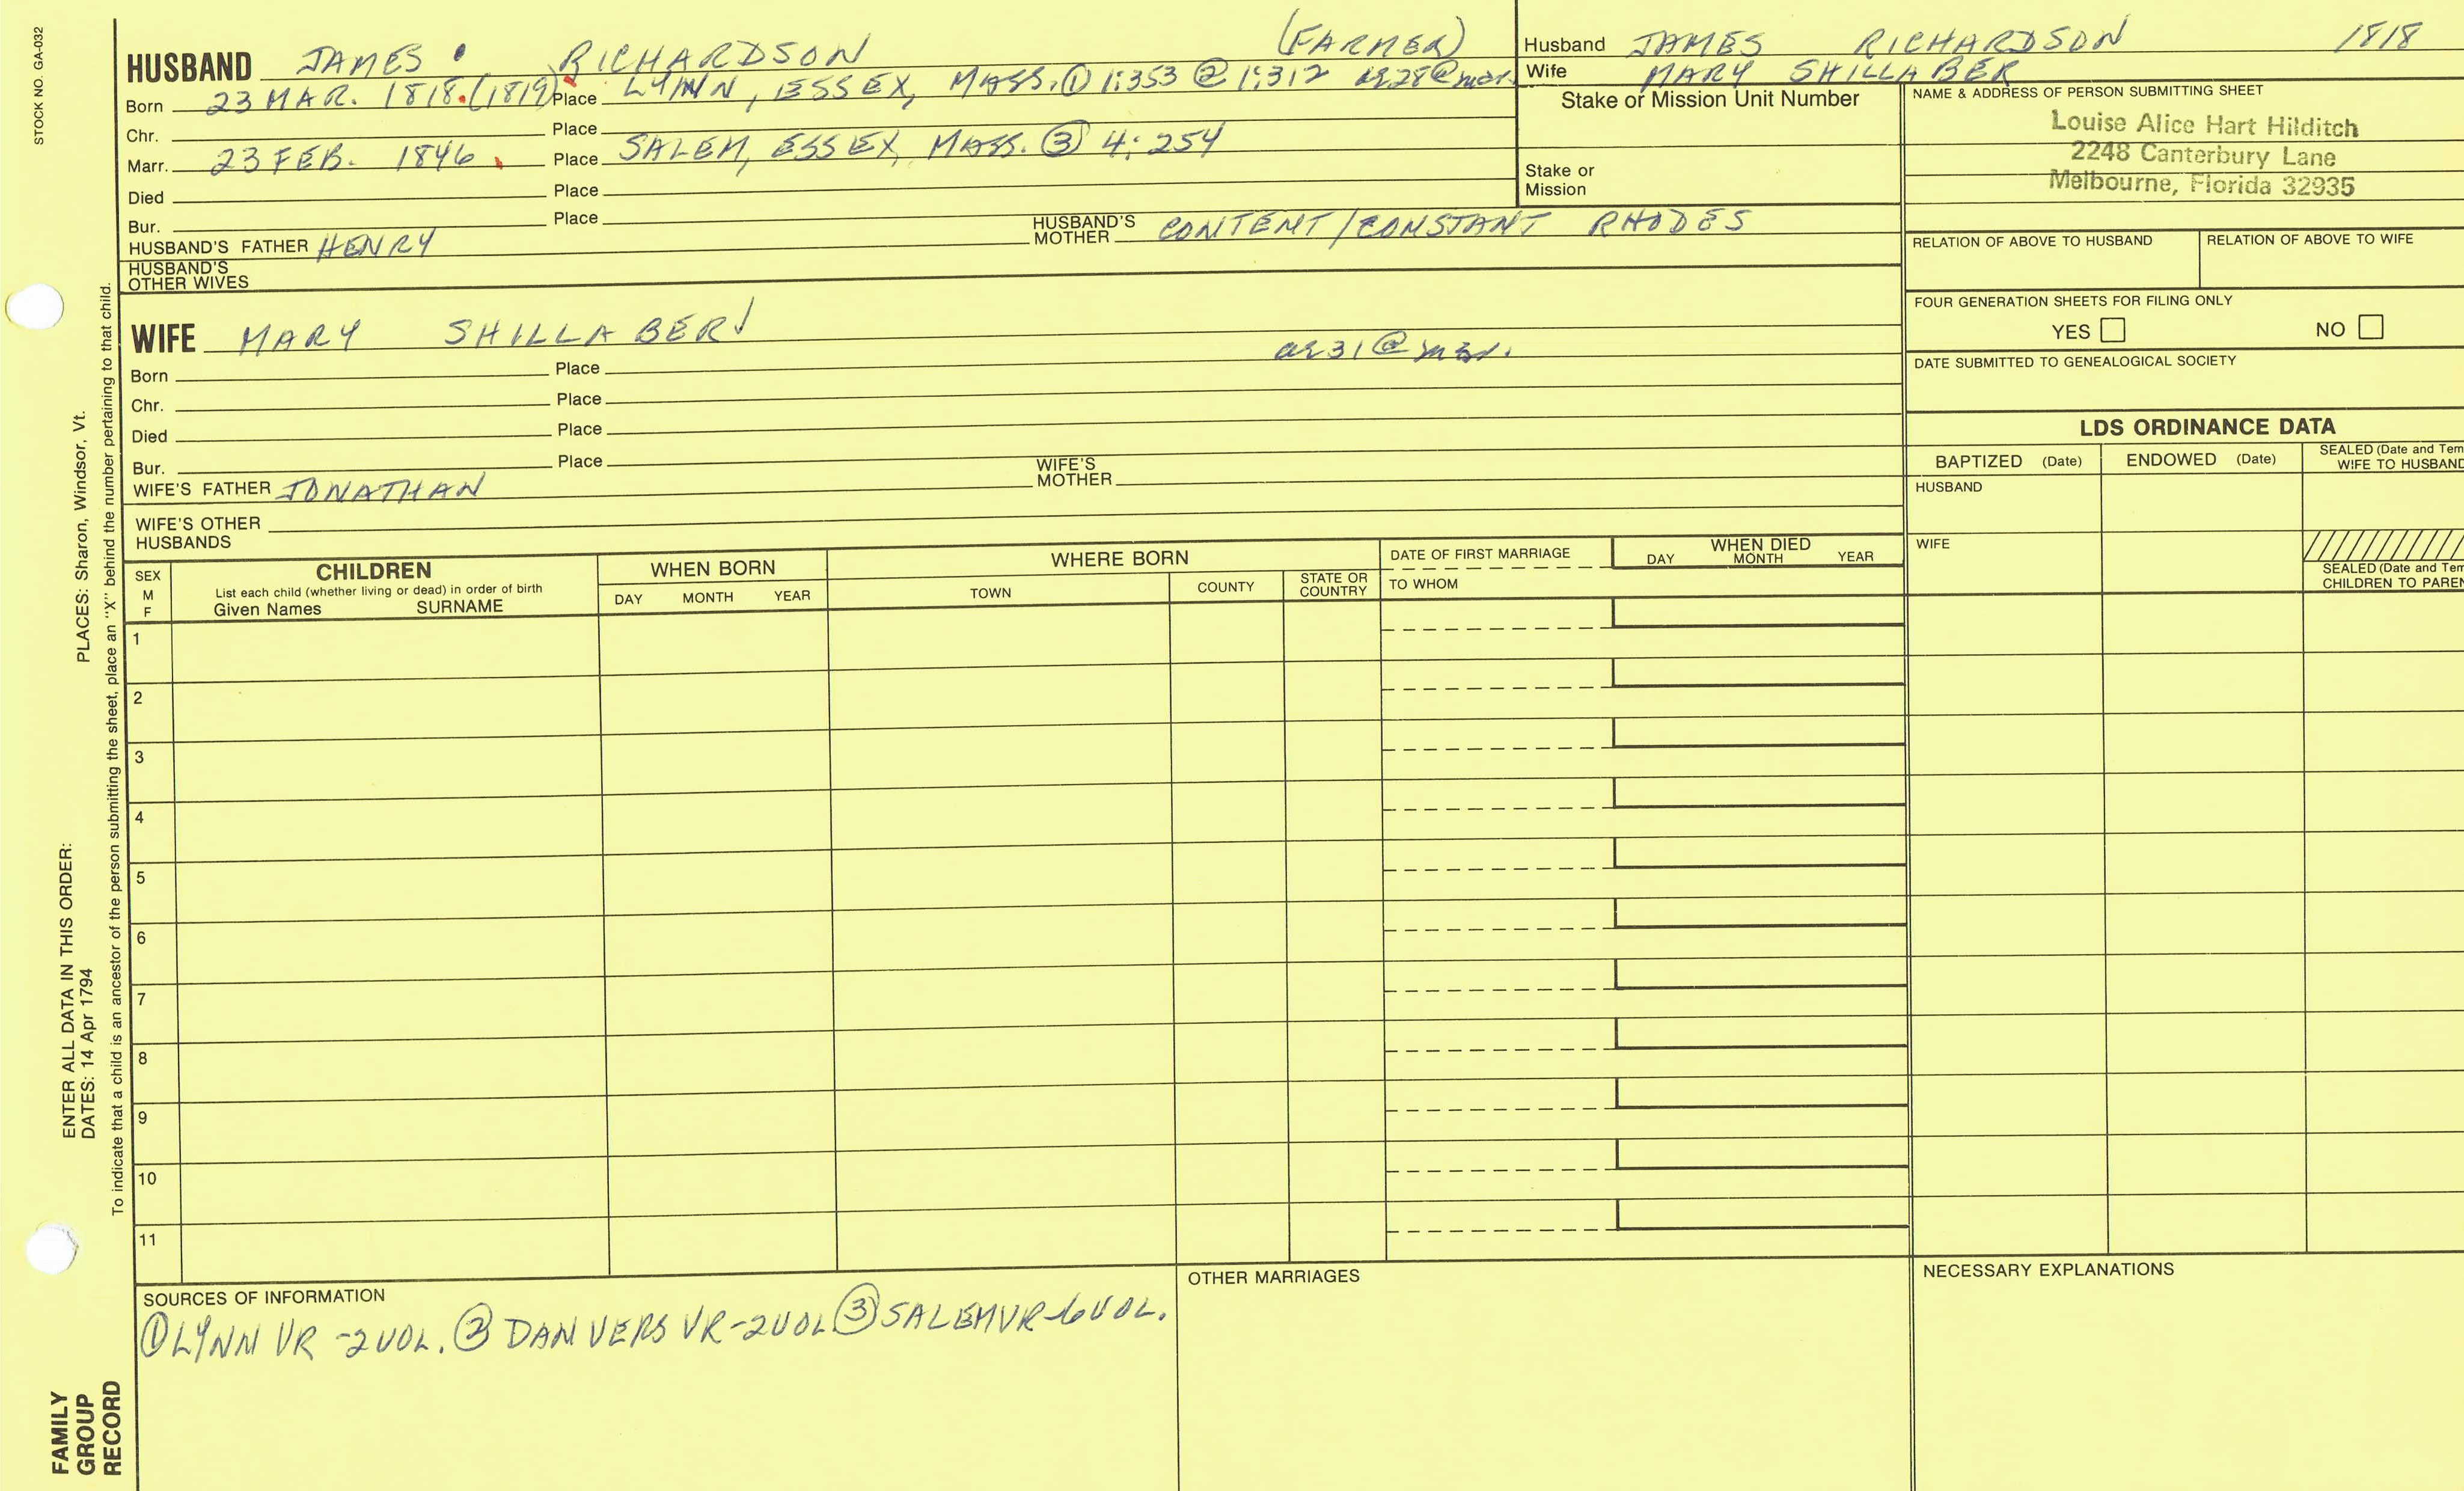 STOCK NO. GA-032
HUSBAND JAMES RICHARDSON (FARMER)
Born 23 MAR. 1818.(1819) Place LYNN, ESSEX, MASS. ① 1:353 ② 1:312 ae 28 @ mar.
Chr. Place
Marr. 23 FEB. 1846. Place SALEM, ESSEX, MASS. ③ 4:254
Died Place
Bur. Place
HUSBAND'S FATHER HENRY HUSBAND'S MOTHER CONTENT/CONSTANT RHODES
HUSBAND'S OTHER WIVES
WIFE MARY SHILLABER
ae 31 @ mar.
Born Place
Chr. Place
Died Place
Bur. Place
WIFE'S FATHER JONATHAN WIFE'S MOTHER
WIFE'S OTHER HUSBANDS
Husband JAMES RICHARDSON 1818
Wife MARY SHILLABER
Stake or Mission Unit Number
Stake or Mission
NAME & ADDRESS OF PERSON SUBMITTING SHEET
Louise Alice Hart Hilditch
2248 Canterbury Lane
Melbourne, Florida 32935
RELATION OF ABOVE TO HUSBAND RELATION OF ABOVE TO WIFE
FOUR GENERATION SHEETS FOR FILING ONLY
YES NO
DATE SUBMITTED TO GENEALOGICAL SOCIETY
LDS ORDINANCE DATA
BAPTIZED (Date) ENDOWED (Date) SEALED (Date and Tem
WIFE TO HUSBAND
HUSBAND
WIFE
SEALED (Date and Tem
CHILDREN TO PAREN
SEX M F
CHILDREN
List each child (whether living or dead) in order of birth
Given Names SURNAME
WHEN BORN
DAY MONTH YEAR
WHERE BORN
TOWN COUNTY STATE OR COUNTRY
DATE OF FIRST MARRIAGE
TO WHOM
WHEN DIED
DAY MONTH YEAR
1
2
3
4
5
6
7
8
9
10
11
SOURCES OF INFORMATION
① LYNN VR -2VOL. ② DANVERS VR-2VOL ③ SALEM VR-6VOL.
OTHER MARRIAGES
NECESSARY EXPLANATIONS
FAMILY GROUP RECORD
ENTER ALL DATA IN THIS ORDER:
DATES: 14 Apr 1794
PLACES: Sharon, Windsor, Vt.
To indicate that a child is an ancestor of the person submitting the sheet, place an "X" behind the number pertaining to that child.